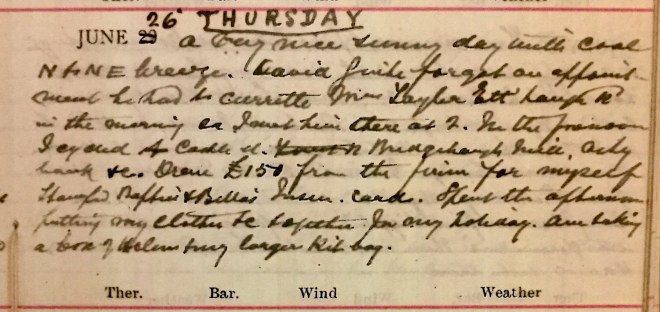 26 THURSDAY
JUNE 29 a very nice sunny day with cool
N to NE breeze. David quite forgot an appoint-
ment he had to currette Mrs Taylor
in the morning so I met him there at 2. In the forenoon
I cycled to Castle St. Bridgehaugh Mill,
bank &c. Drew £150 from the firm for myself
Stamped & Bella's Insur. cards. Spent the afternoon
putting my clothes &c together for my holiday. am taking
a box & my larger Kit bag.
Ther. Bar. Wind Weather